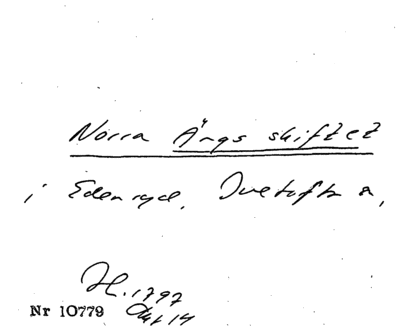 Norra Ängs skiftet
i Edenryd, Ivetofta,
H. 1797
Nr 10779